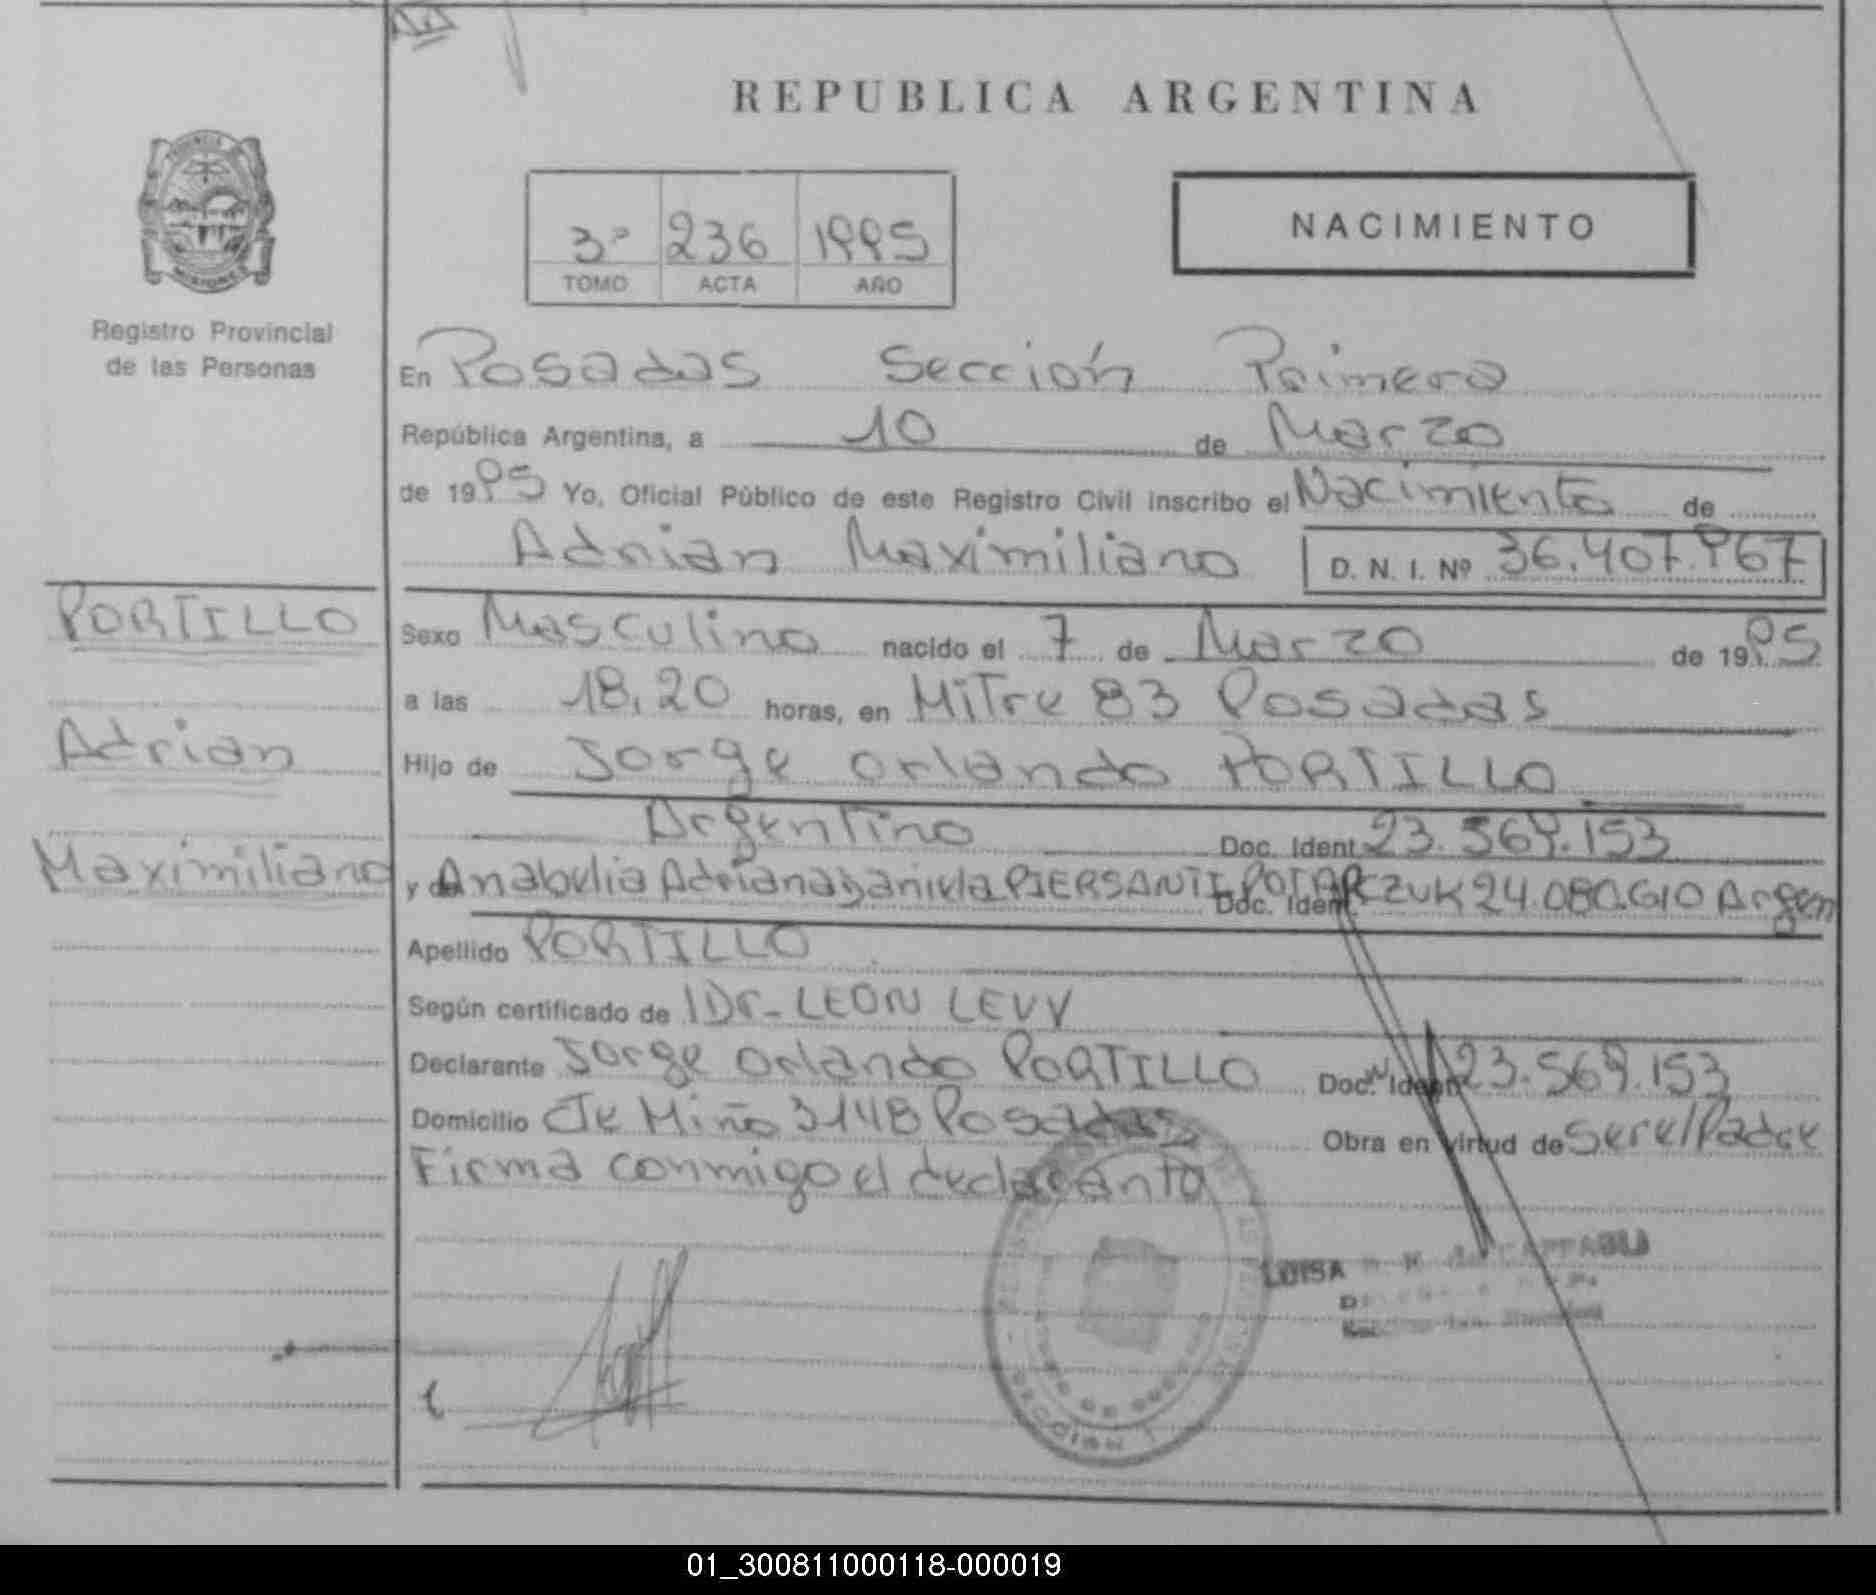 REPUBLICA ARGENTINA
3º 236 1995
TOMO ACTA AÑO
NACIMIENTO
Registro Provincial
de las Personas
En Posadas Sección Primera
República Argentina, a 10 de Marzo
de 1995 Yo, Oficial Público de este Registro Civil inscribo el Nacimiento de
Adrian Maximiliano D. N. I. Nº 36.407.967
PORTILLO
Adrian
Maximiliano
Sexo Masculino nacido el 7 de Marzo de 1995
a las 18,20 horas, en Mitre 83 Posadas
Hijo de Jorge Orlando PORTILLO
Argentino Doc. Ident 23.569.153
y de Anabelia Adriana Daniela PIERSANTI POTARCZUK Doc. Ident. 24.080.610 Argen
Apellido PORTILLO
Según certificado de Dr- LEON LEVY
Declarante Jorge Orlando PORTILLO Doc. Ident 23.569.153
Domicilio Cte Miño 3148 Posadas Obra en virtud de ser el Padre
Firma conmigo el declarante
LUISA
01_300811000118-000019